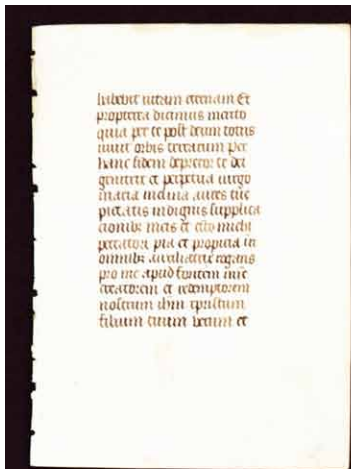 habebit vitam eternam Et
propterea dicimus merito
quia per te post deum totus
vivit orbis terrarum per
hanc fidem deprecor te dei
genitrix et perpetua virgo
maria inclina aures tue
pietatis indignis supplica
cionibz meis et esto michi
peccatori pia et propicia in
omnibz auxiliatrix rogans
pro me apud
creatorem et redemptorem
nostrum ihm xpristum
filium tuum verum et